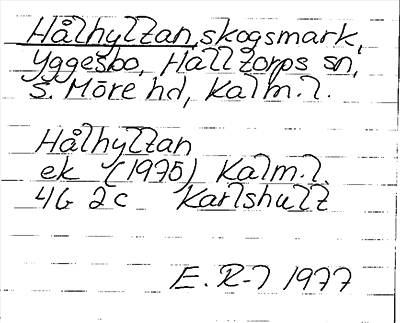 Hålhyltan, skogsmark,
Yggesbo, Halltorps sn,
S. Möre hd, Kalm. l.
Hålhyltan
ek (1975) Kalm. l.
4G 2c Karlshult
E. R-l 1977